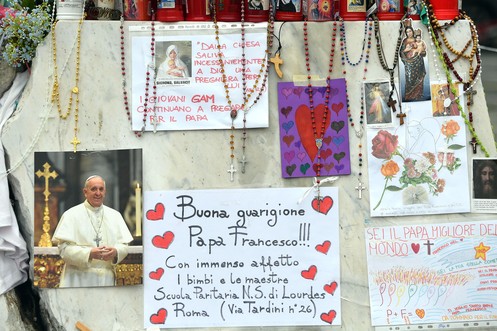 "DALLA CHIESA
SALIVA
INCESSANTEMENTE
A DIO UNA
PREGHIERA
PER
GIOVANI GAM
CONTINUANO A PREGARE
PER IL PAPA
Buona guarigione
Papa Francesco!!!
Con immenso affetto
I bimbi e le maestre
Scuola Paritaria N.S. di Lourdes
Roma (Via Tardini n°26)
SEI IL PAPA MIGLIORE DEL
MONDO